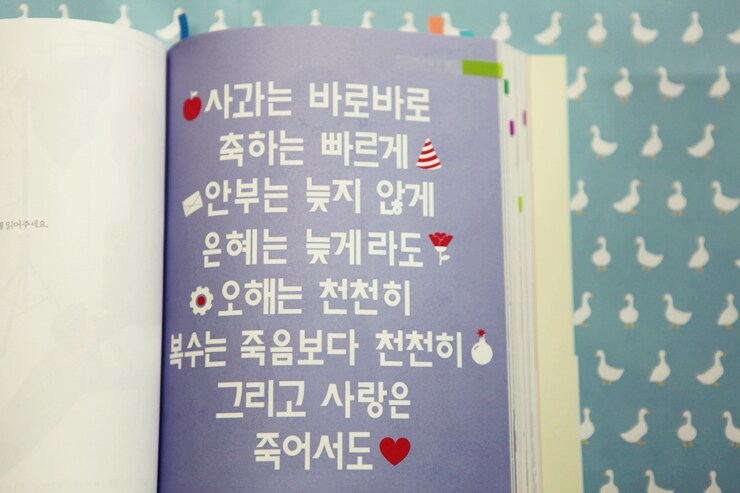 사과는 바로바로
축하는 빠르게
안부는 늦지 않게
은혜는 늦게라도
오해는 천천히
복수는 죽음보다 천천히
그리고 사랑은
죽어서도
읽어주세요